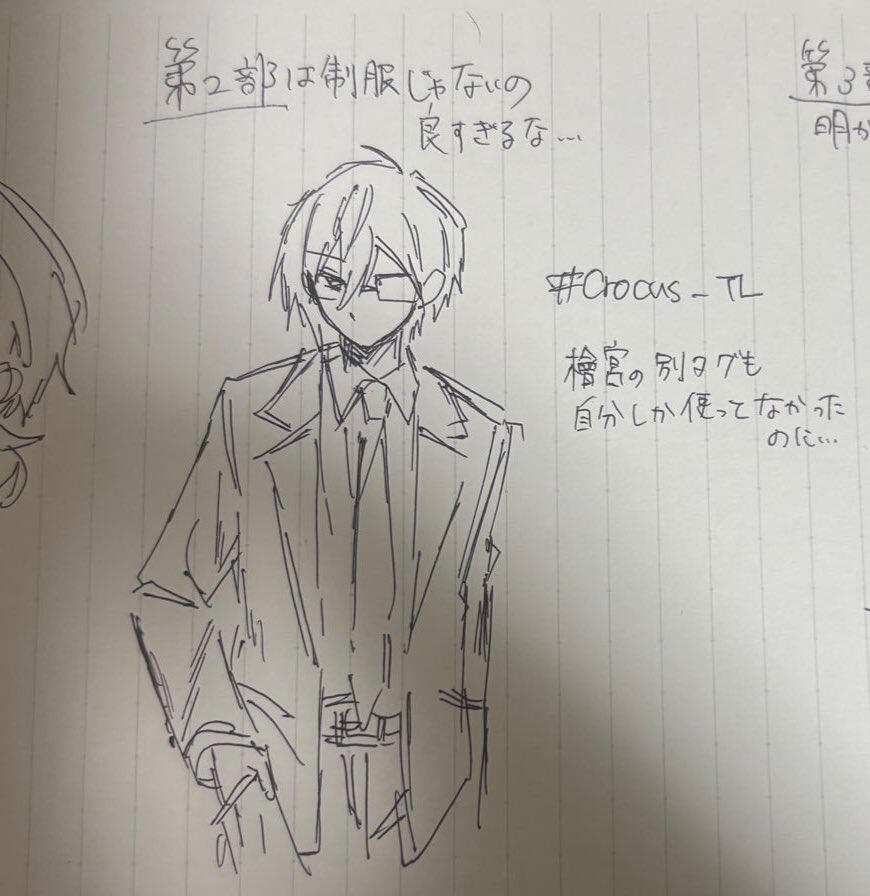 第2部は制服じゃないの
良すぎるな…
#Crocus_TL
檜宮の別タグも
自分しか使ってなかった
のに…
第3部
明か